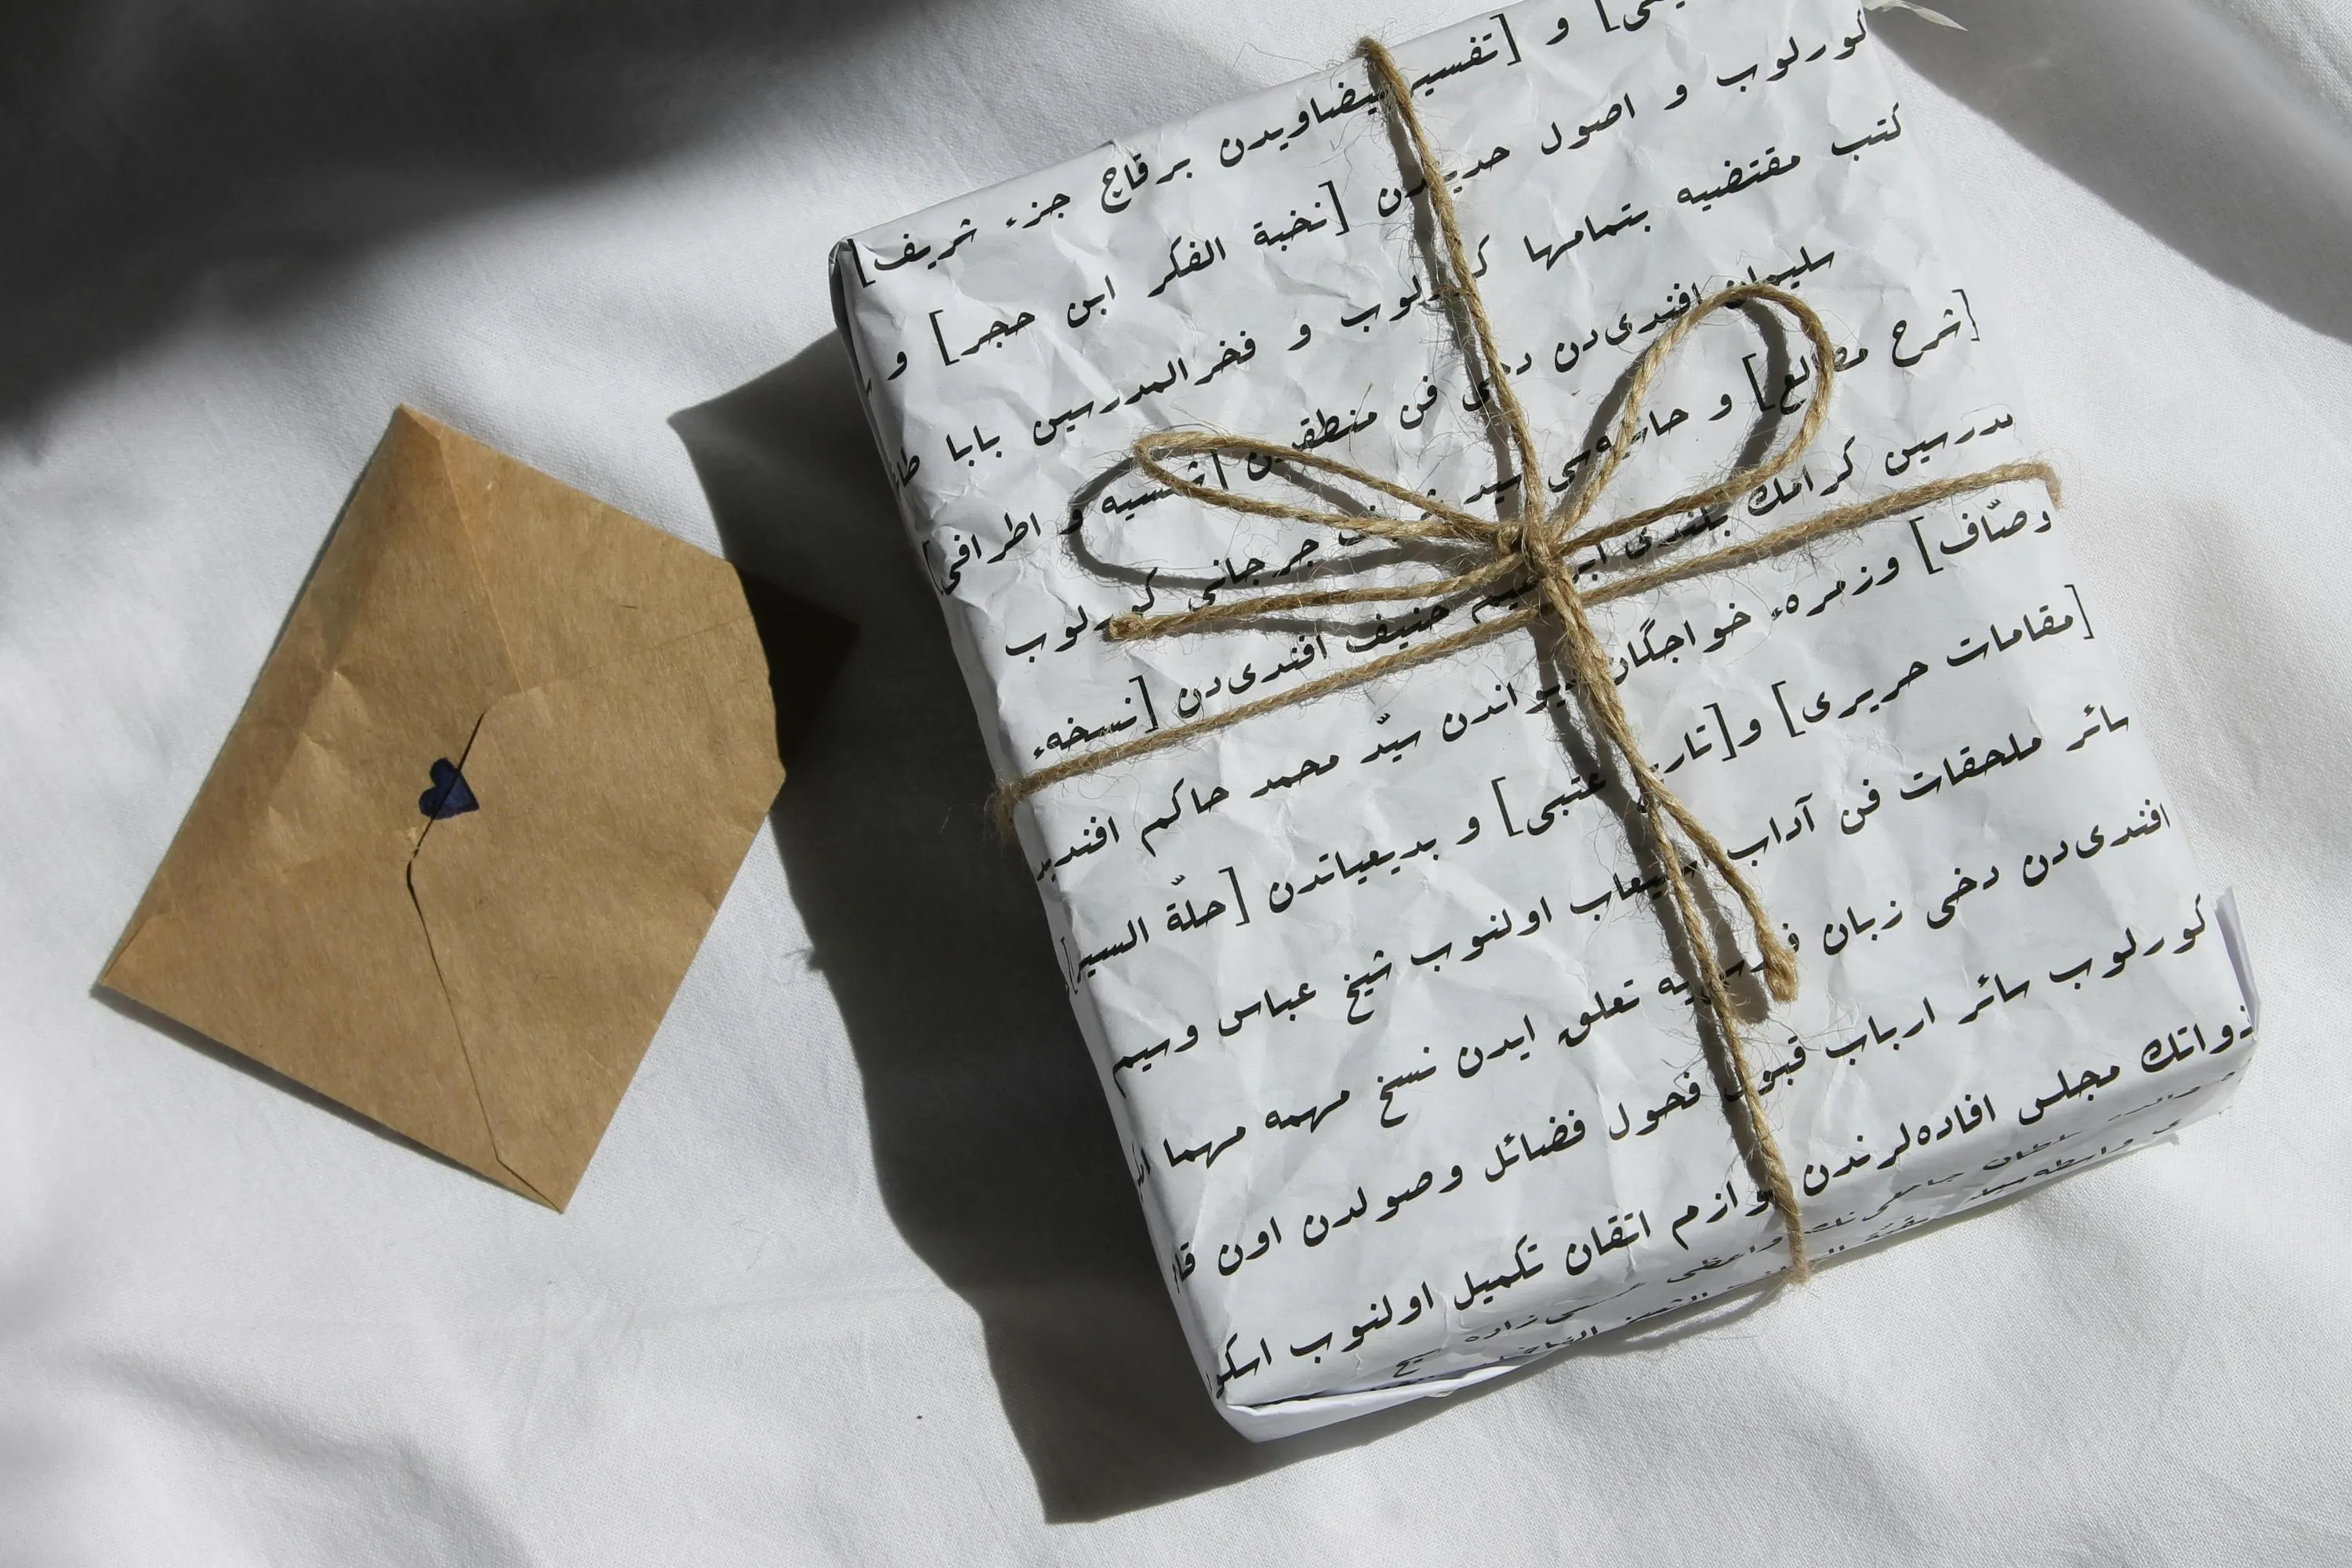 و [تفسير بيضاويدن برقاچ جزء شريف]
كورلوب و اصول حديثدن [نخبة الفكر ابن حجر] و
كتب مقتضيه بتمامها كورلوب و فخرالمدرسين بابا طاغى
سليمان افندى‌دن دخى فن منطقدن [شمسيه و اطرافى]
[شرح مطالع] و حاشيه‌سى سيد شريف جرجانى كورلوب
مدرسين كرامك بلندى ابراهيم حنيف افندى‌دن [نسخهء
وصّاف] وزمرهء خواجگان ديواندن سيّد محمد حاكم افنديدن
[مقامات حريرى] و[تاريخ عتبى] و بديعياتدن [حلّة السيرا]
سائر ملحقات فن آداب استيعاب اولنوب شيخ عباس وسيم
افندى‌دن دخى زبان فارسى‌يه تعلق ايدن نسخ مهمه مهما امكن
كورلوب سائر ارباب قبول فحول فضائل وصولدن اون
ذواتك مجلس افاده‌لرندن لوازم اتقان تكميل اولنوب